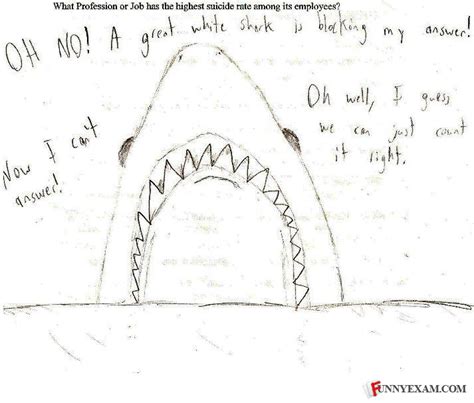 What Profession or Job has the highest suicide rate among its employees?
OH NO! A great white shark is blocking my answer!
Oh well, I guess
we can just count
it right.
Now I can't
answer!
FUNNYEXAM.COM